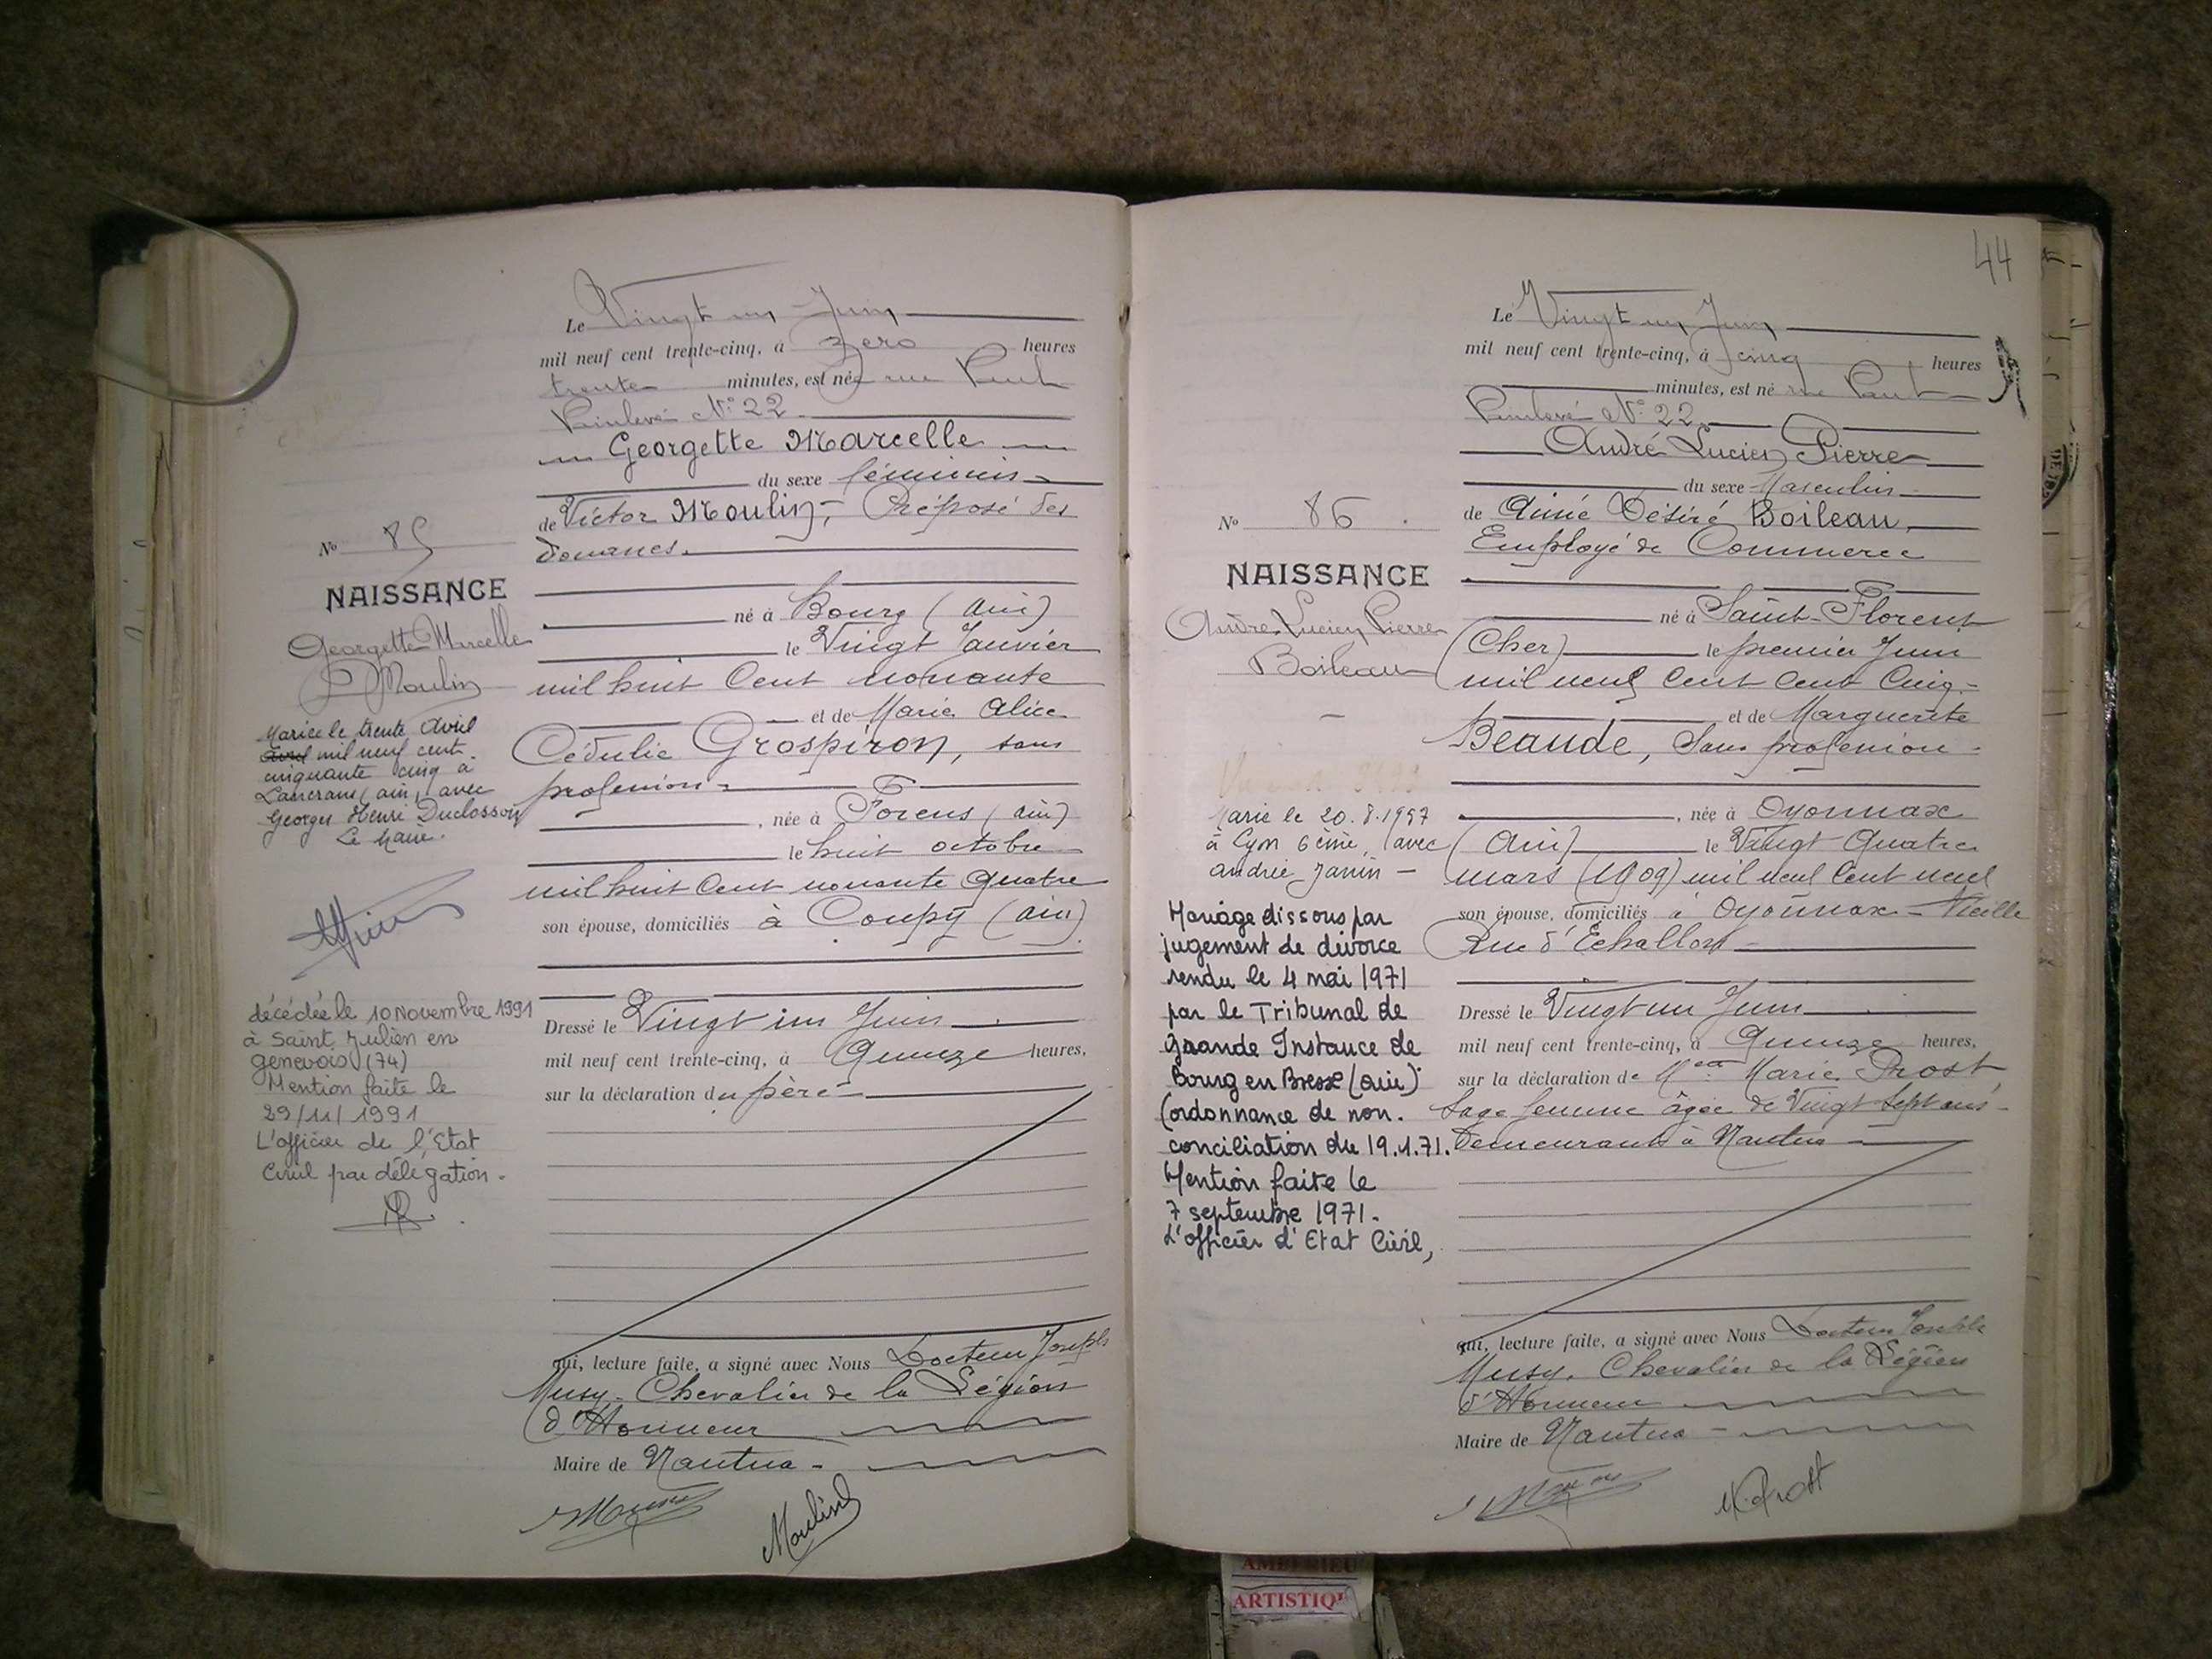 Le Vingt un Juin
mil neuf cent trente-cinq, à zero heures
trente minutes, est née rue Paul
Painlevé N° 22
Georgette Marcelle
du sexe féminin
de Victor Moulin, Préposé des
douanes.
né à Bourg (Ain)
le Vingt Janvier
mil huit Cent nonante
et de Marie Alice
Cédulie Grospiron, sans
profession
, née à Forens (ain)
le huit octobre
mil huit Cent nonante quatre
son épouse, domiciliés à Coupy (ain)
Dressé le Vingt un Juin
mil neuf cent trente-cinq, à Quinze heures,
sur la déclaration du père
qui, lecture faite, a signé avec Nous Docteur Joseph
Musy. Chevalier de la Légion
d'Honneur
Maire de Nantua
Moulin
N° 85
NAISSANCE
Georgette Marcelle
Moulin
Mariée le trente Avril
avril mil neuf cent
cinquante cinq à
Lancrans, ain, avec
Georges Henri
Le Maire.
décédée le 10 Novembre 1991
à Saint Julien en
genevois (74)
Mention faite le
29/11/1991
L'officier de l'Etat
Civil par délégation.
44
Le Vingt un Juin
mil neuf cent trente-cinq, à cinq heures
minutes, est né rue Paul
Painlevé N° 22
André Lucien Pierre
du sexe Masculin
de Aimé Désiré Boileau,
Employé de Commerce
né à Saint-Florent
(Cher) le premier Juin
mil neuf Cent Cent Cinq
et de Marguerite
Beaude, Sans profession
, née à Oyonnax
(Ain) le Vingt Quatre
mars (1909) mil neuf Cent neuf
son épouse, domiciliés à Oyonnax - Vieille
Rue d'Echallon
Dressé le Vingt un Juin
mil neuf cent trente-cinq, à Quinze heures,
sur la déclaration de Marie Prost,
Sage femme âgée de Vingt Sept ans
Demeurant à Nantua
qui, lecture faite, a signé avec Nous Docteur Joseph
Musy. Chevalier de la Légion
d'Honneur
Maire de Nantua
M. Prost
N° 86
NAISSANCE
André Lucien Pierre
Boileau
Marié le 20.8.1957
à Lyon 6ème, avec
andrée Janin
Mariage dissous par
jugement de divorce
rendu le 4 mai 1971
par le Tribunal de
Grande Instance de
Bourg en Bresse (ain)
(ordonnance de non.
conciliation du 19.1.71.
Mention faite le
7 septembre 1971.
L'officier d'Etat Civil,
AMBERIEU
ARTISTIQ